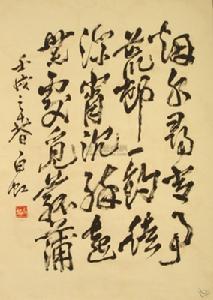 烟水尋常事
荒邨一釣徒
深宵沈醉起
無處覓菰蒲
壬戌之春白